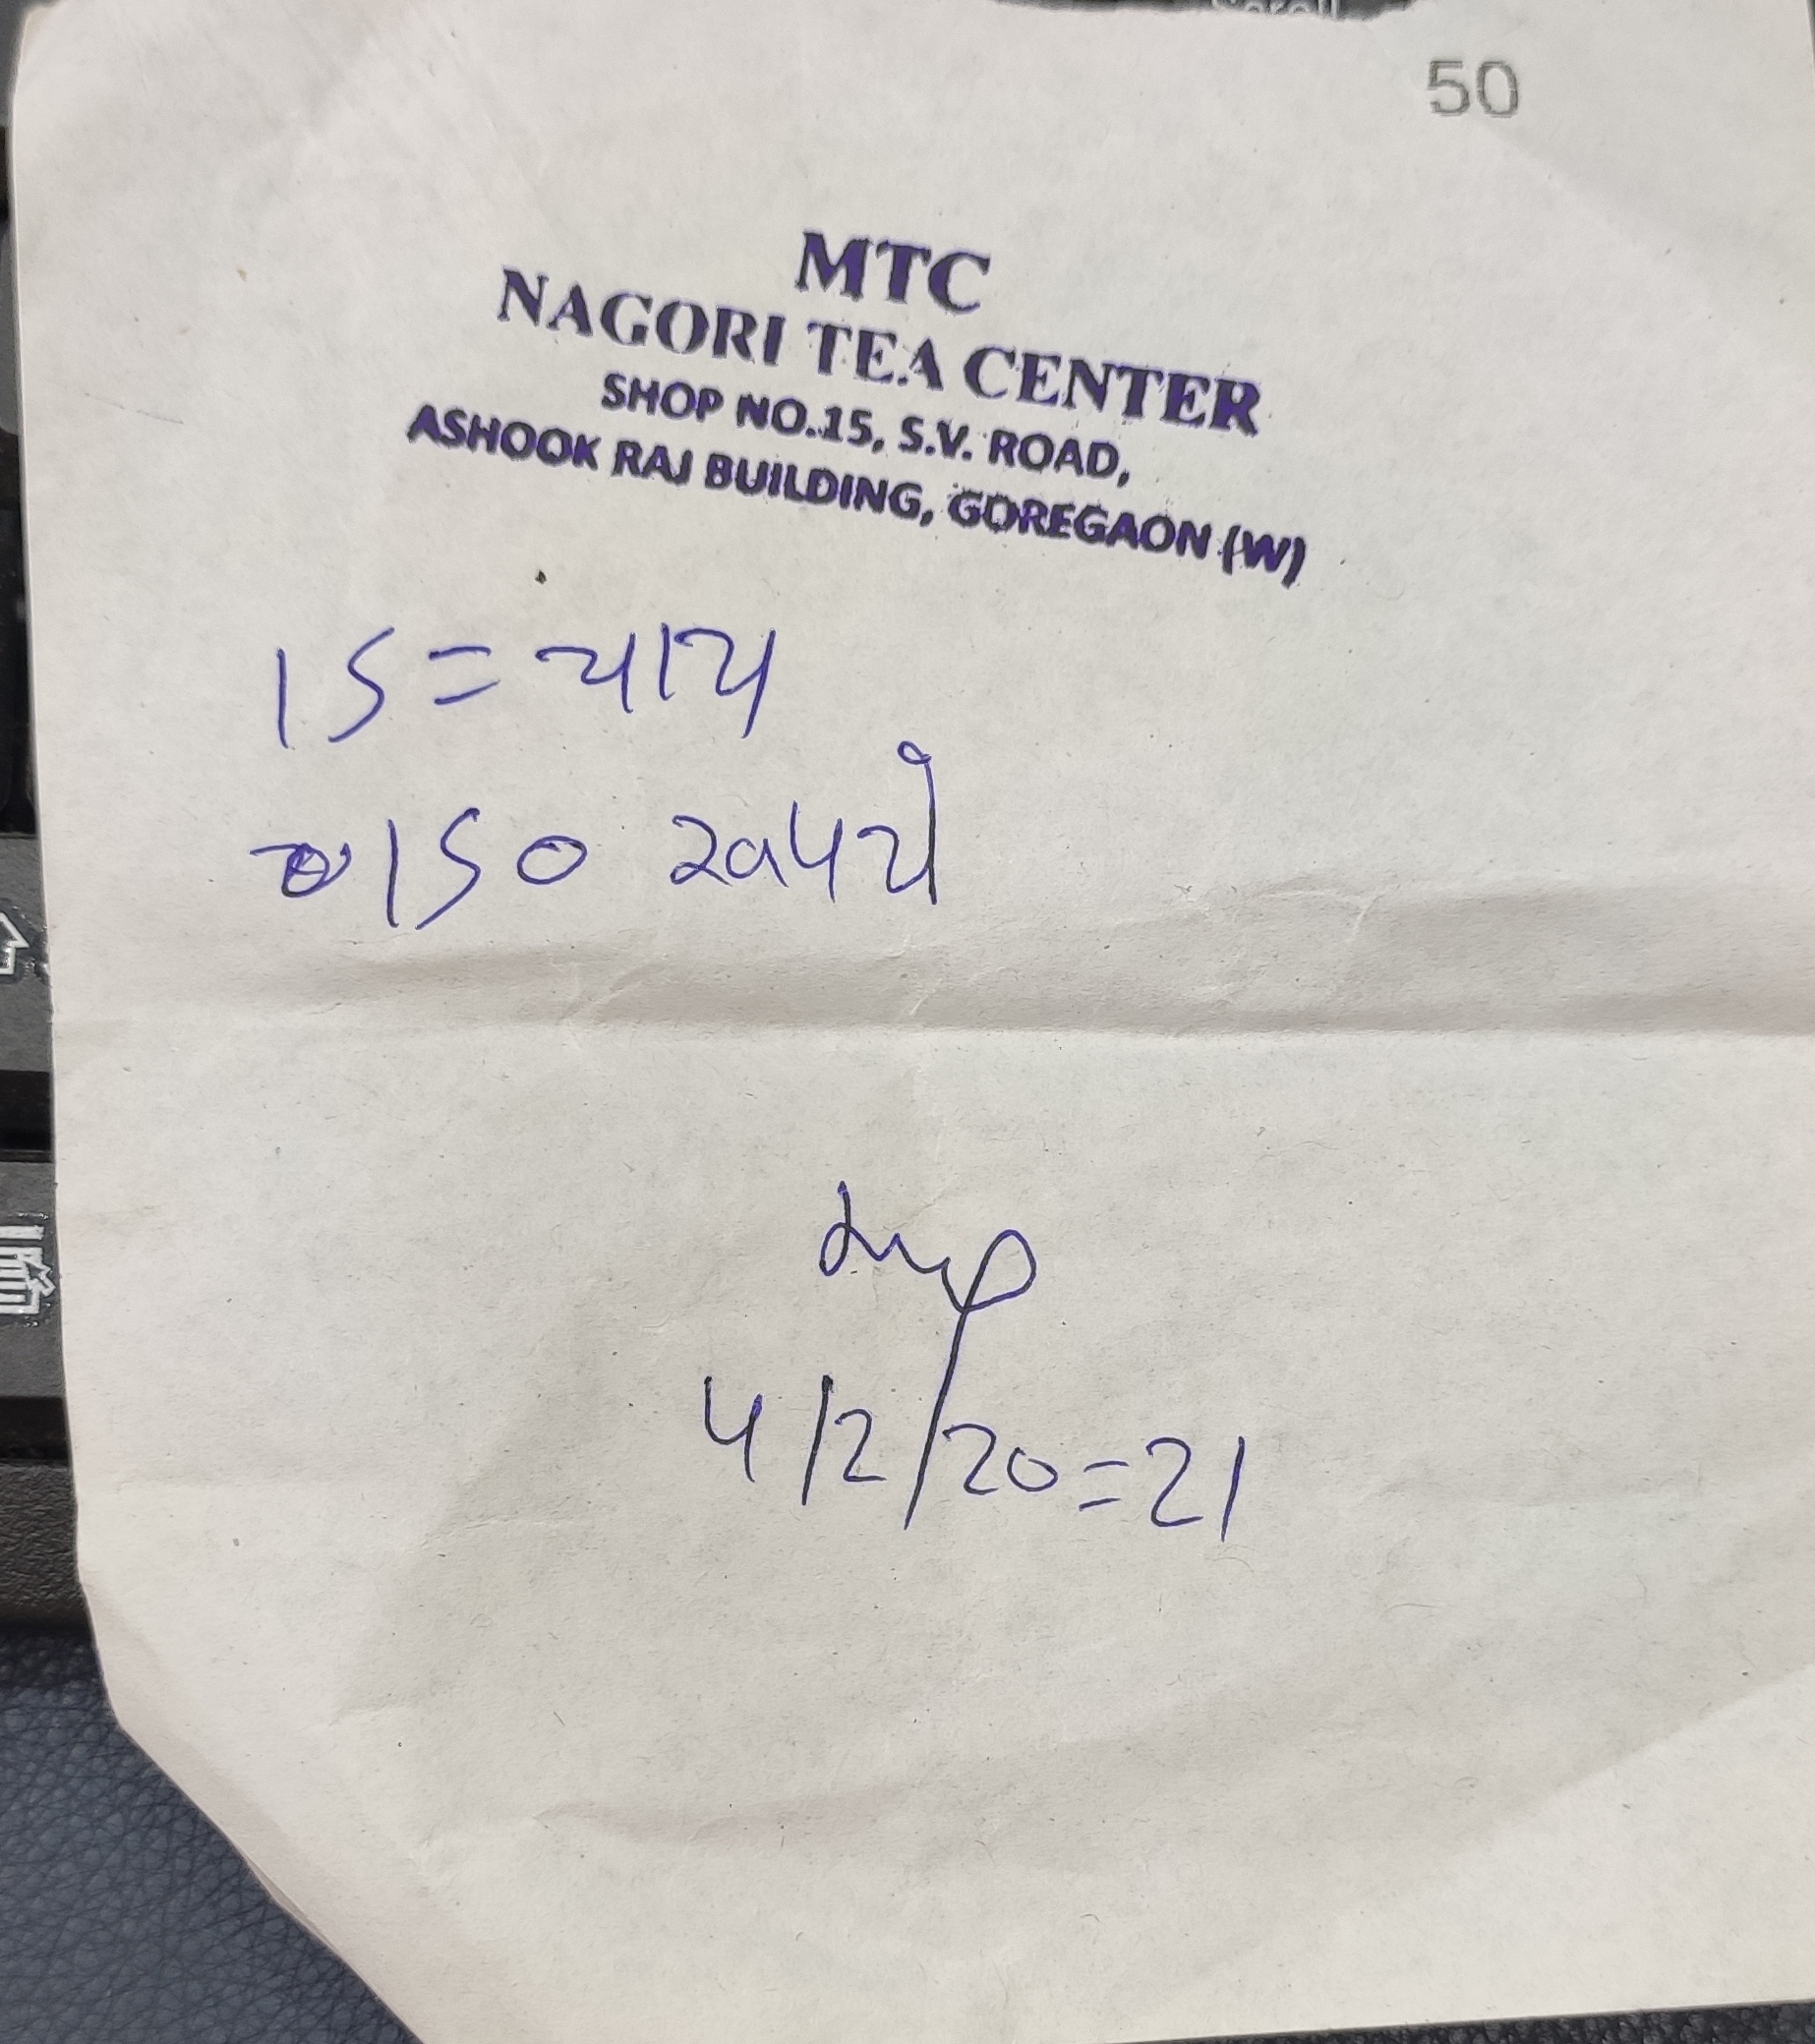 50
MTC
NAGORI TEA CENTER
SHOP NO.15, S.V. ROAD,
ASHOOK RAJ BUILDING, GOREGAON (W)
15 = चाय
150 रूपये
4/2/20=21